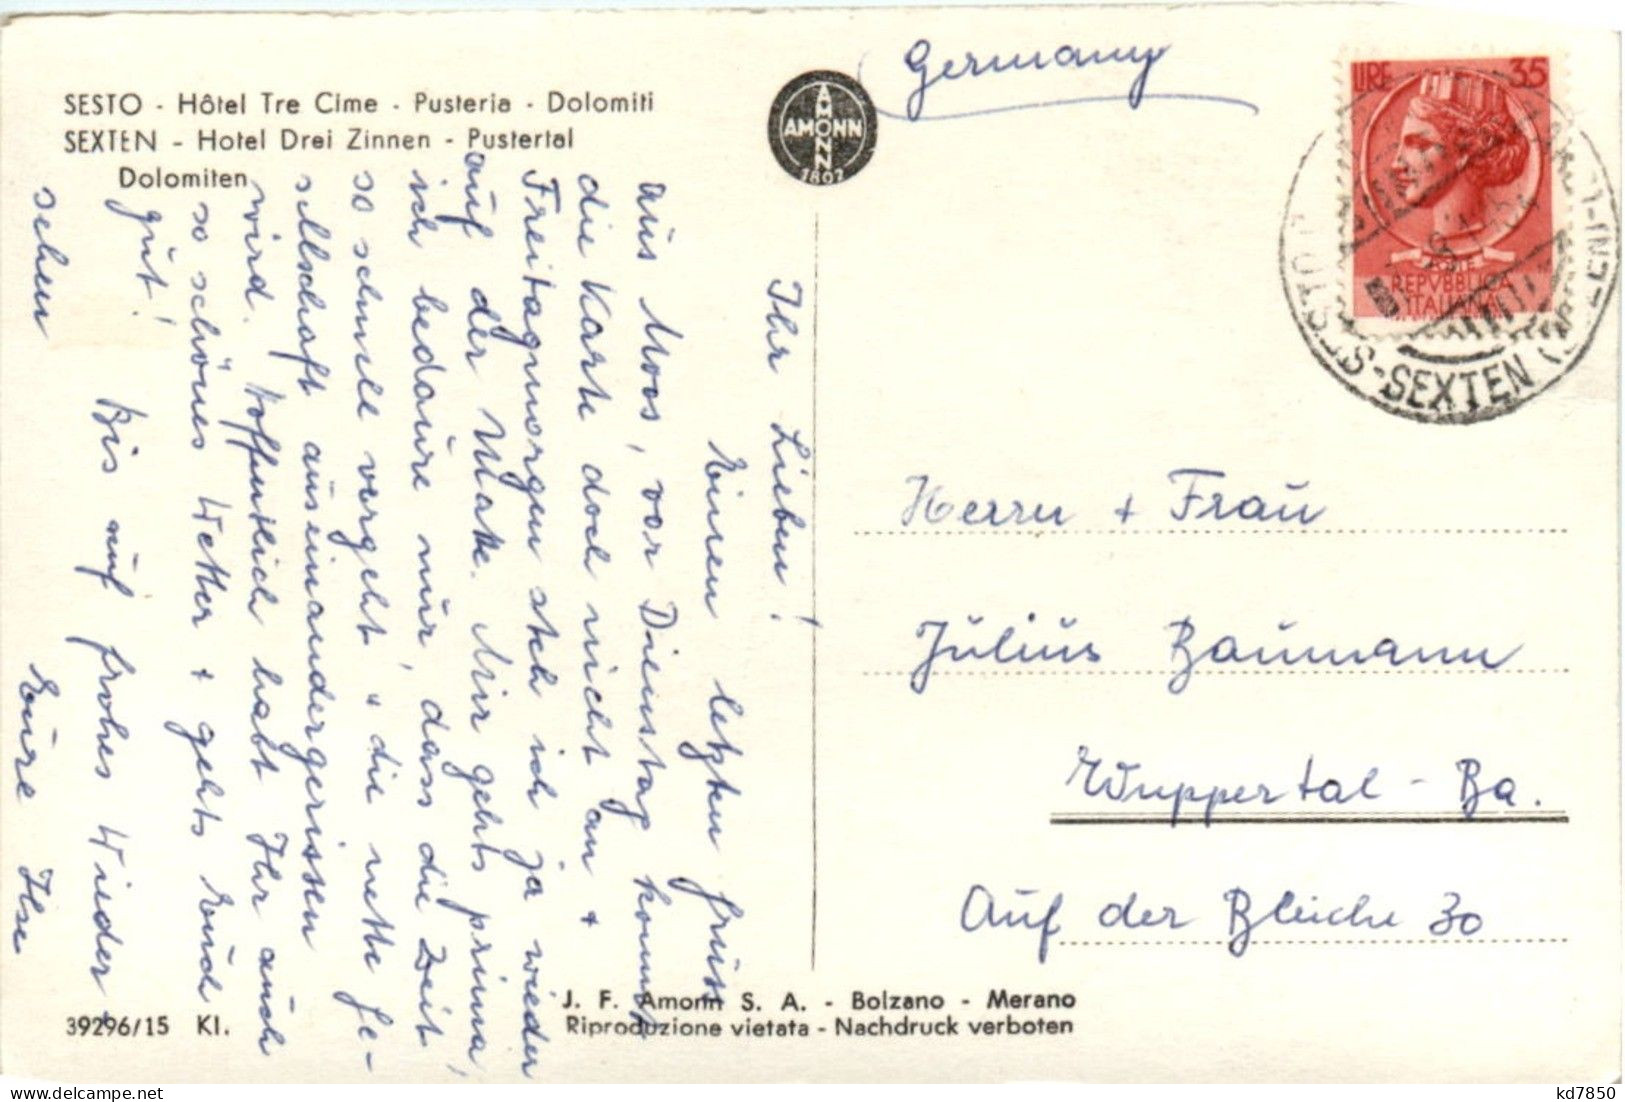 SESTO - Hôtel Tre Cime - Pusteria - Dolomiti
SEXTEN - Hotel Drei Zinnen - Pustertal
Dolomiten
AMONN
AMONN
1802
Germany
LIRE 35
REPVBBLICA
ITALIANA
SESTO - SEXTEN
Ihr Lieben!
Einen letzten Gruss
aus Moos, vor Dienstag kommt
die Karte doch nicht an +
Freitagmorgen steh ich ja wieder
auf der Matte. Mir gehts prima,
ich bedaure nur, dass die Zeit
so schnell vergeht + die nette Ge-
sellschaft auseinandergerissen
wird. Hoffentlich habt Ihr auch
so schönes Wetter + gehts Euch
gut!
Bis auf frohes Wieder-
sehen
Eure Ilse
Herrn + Frau
Julius Baumann
Wuppertal - Ba.
Auf der Bleiche 30
39296/15 Kl.
J. F. Amonn S. A. - Bolzano - Merano
Riproduzione vietata - Nachdruck verboten
kd7850